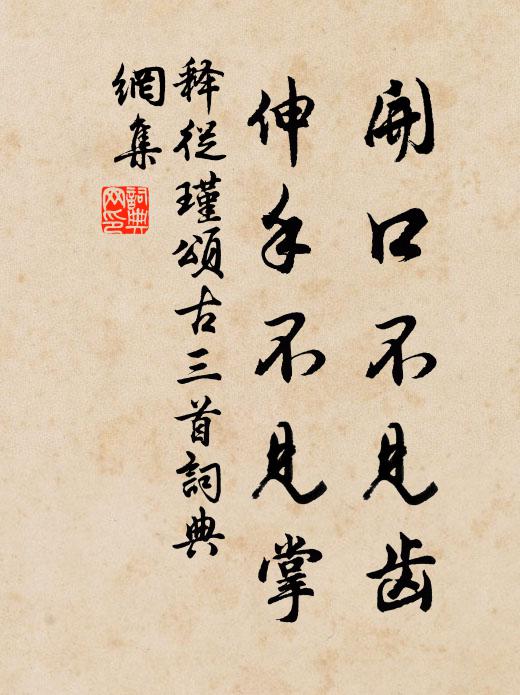 開口不見齿
伸手不見掌
释從瑾頌古三首詞典
網集
詞典
网印